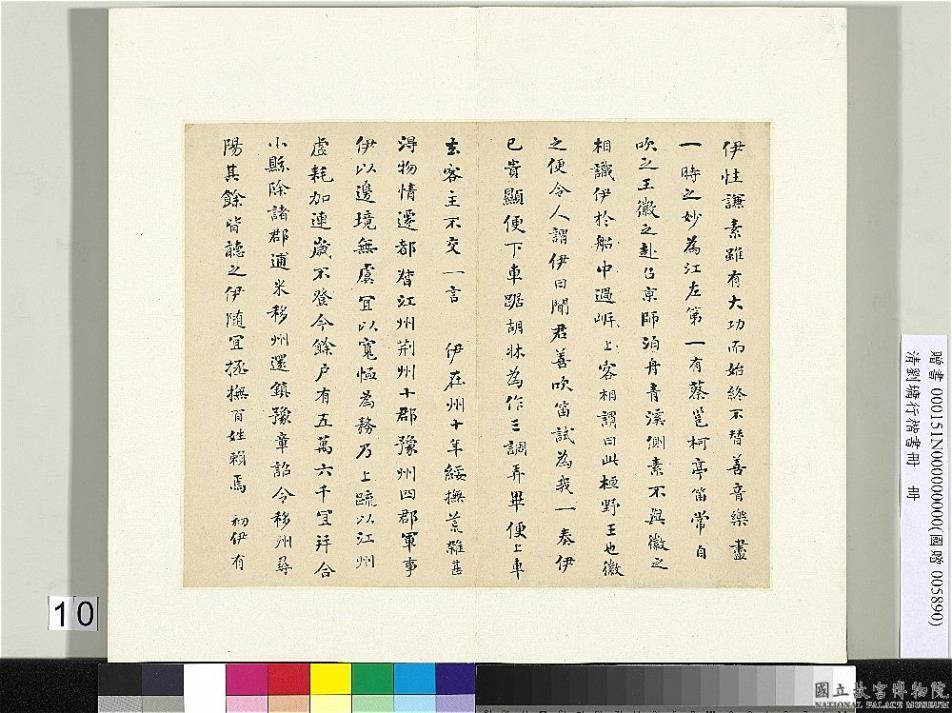 伊性謙素雖有大功而始終不替善音樂盡
一時之妙為江左第一有蔡邕柯亭笛常自
吹之王徽之赴召京師泊舟青溪側素不與徽之
相識伊於船中過岸上客相謂曰此桓野王也徽
之便令人謂伊曰聞君善吹笛試為我一奏伊
已貴顯便下車踞胡床為作三調弄畢便上車
去客主不交一言　伊在州十年綏撫荒雜甚
得物情遷都督江州荊州十郡豫州四郡軍事
伊以邊境無虞宜以寬恤為務乃上疏以江州
虛耗加連歲不登今餘戶有五萬六千宜并合
小縣除諸郡逋米移州還鎮豫章詔令移州尋
陽其餘皆聽之伊隨宜拯撫百姓賴焉　初伊有
贈書 000151N000000000(國贈 005890)
清劉墉行楷書冊　冊
10
國立故宮博物院
NATIONAL PALACE MUSEUM